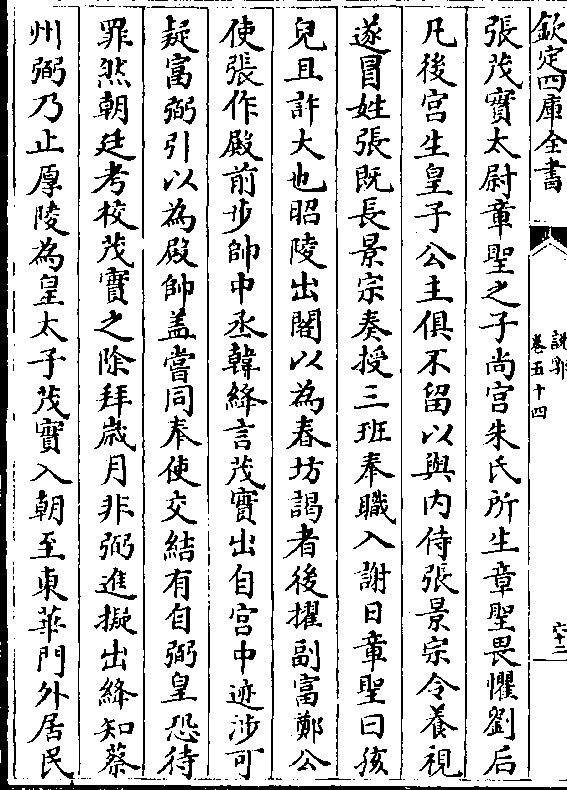 欽定四庫全書
說郛
卷五十四
六十二
張茂實太尉章聖之子尚宫朱氏所生章聖畏懼劉后
凡後宫生皇子公主俱不留以與内侍張景宗令養視
遂冒姓張既長景宗奏授三班奉職入謝日章聖曰孩
兒且許大也昭陵出閤以為春坊謁者後擢副富鄭公
使張作殿前步帥中丞韓絳言茂實出自宫中迹涉可
疑富弼引以為殿帥盖嘗同奉使交結有自弼皇恐待
罪然朝廷考校茂實之除拜歲月非弼進擬出絳知蔡
州弼乃止厚陵為皇太子茂實入朝至東華門外居民